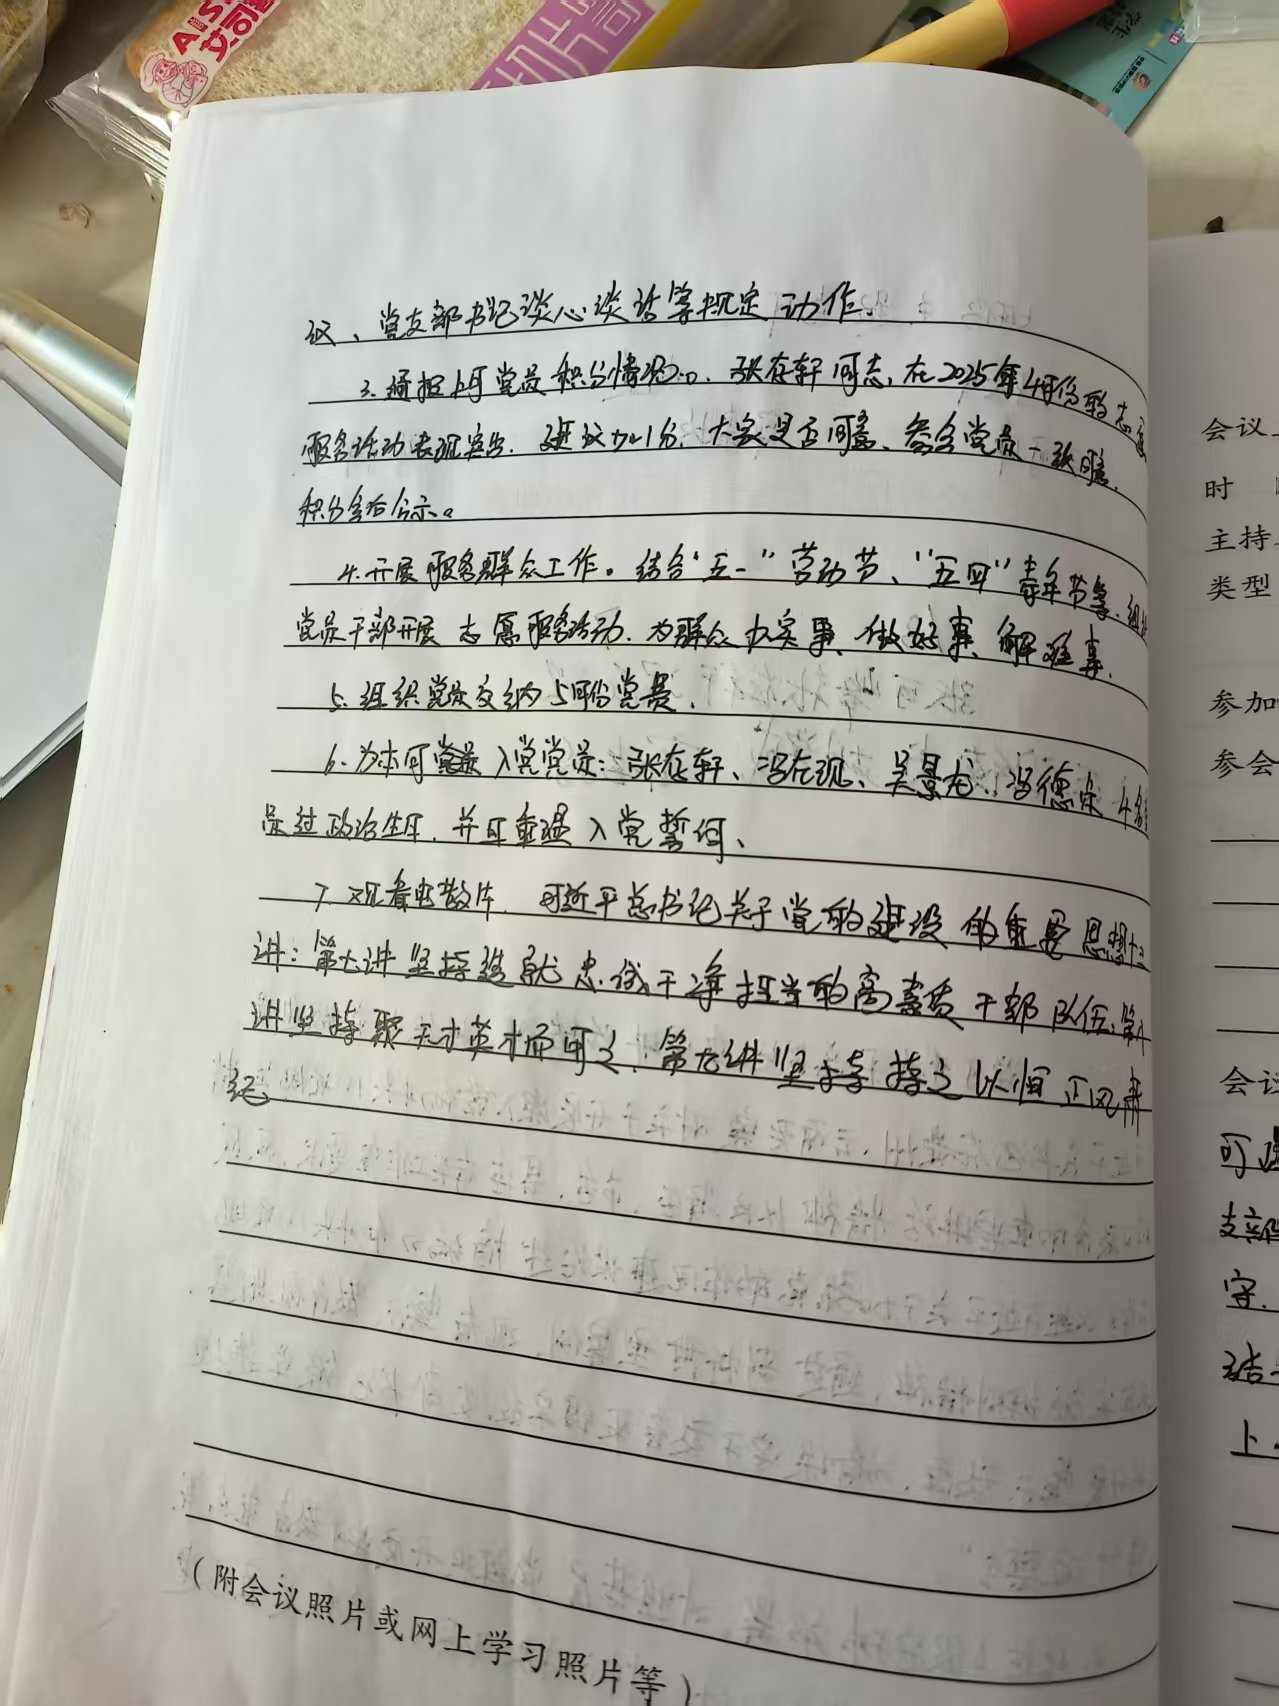 艾
切片
议、党支部书记谈心谈话等规定动作。
3. 通报上月党员积分情况。张在轩同志,在2025年4月份的志愿
服务活动表现突出,建议加1分,大家是否同意、参会党员一致同意,
积分会后公示。
4. 开展服务群众工作。结合“五一”劳动节、“五四”青年节等,组织
党员干部开展志愿服务活动,为群众办实事、做好事、解难事。
5. 组织党员交纳5月份党费、
6. 为本月党员入党党员:张在轩、冯在现、吴景龙、冯德 4名
员过政治生日,并且重温入党誓词、
7. 观看电教片,习近平总书记关于党的建设的重要思想十三
讲:第七讲坚持造就忠诚干净担当的高素质干部队伍,第八
讲坚持聚天下英才而用之,第九讲坚持持之以恒正风肃
纪
(附会议照片或网上学习照片等)
会议
时
主持
类型
参加
参会
会议
可
支部
字.
结
上